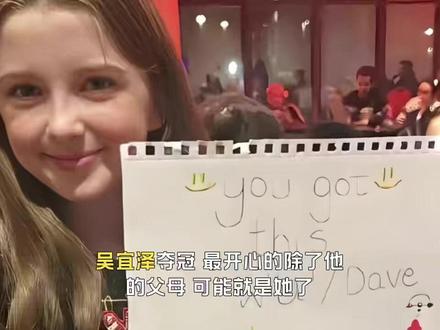 you got
this
/Dave
吴宜泽夺冠 最开心的除了他
的父母 可能就是她了